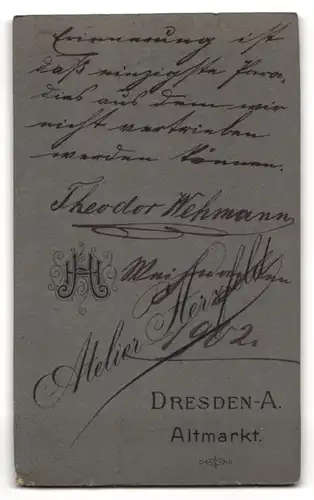 Erinnerung ist
daß einzigste Para-
dies aus dem wir
nicht vertrieben
werden können.
Theodor Wehmann
Weihnachten
1902.
Atelier Herzfeld
DRESDEN-A.
Altmarkt.